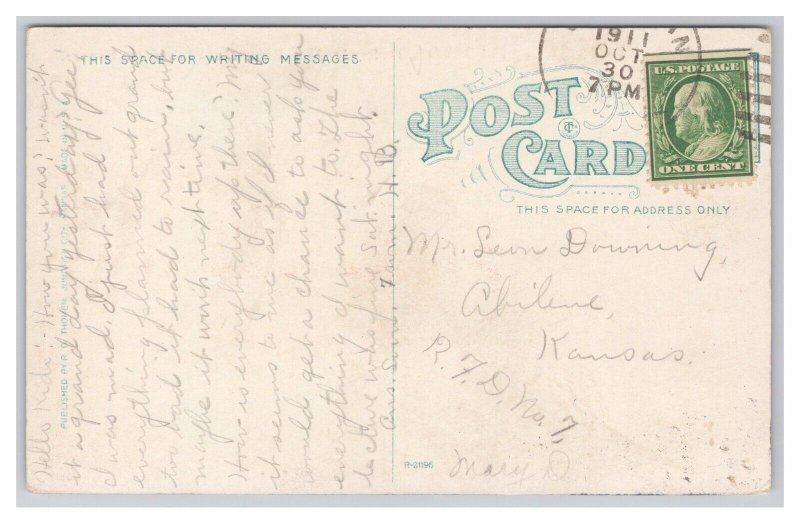 THIS SPACE FOR WRITING MESSAGES
Hello Kid:- How you was? Wasn't
it a grand day yesterday? Gee!
I was mad. I just had
everything planned out grand
too bad it had to rain, but
maybe it won't next time.
How is everybody up there? My
it seems to me as if I never
would get a chance to ask you
everything I want to. The
lecture was fine Sat. night.
Ans. Soon. From. H. B.
PUBLISHED BY
R-21196
1911
OCT
30
7 PM
N
U.S. POSTAGE
ONE CENT
POST
CARD
THIS SPACE FOR ADDRESS ONLY
Mr. Leon Downing,
Abilene,
Kansas.
R. F. D. No. 7,
Mary D